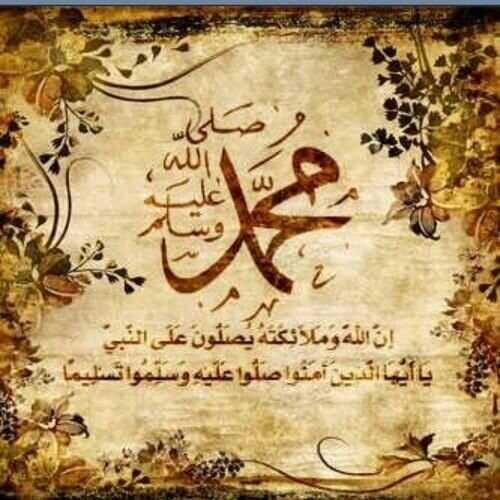 محمد
صَلى
الله
عليه
وسلم
إِنَّ اللَّهَ وَمَلَائِكَتَهُ يُصَلُّونَ عَلَى النَّبِيِّ
يَا أَيُّهَا الَّذِينَ آمَنُوا صَلُّوا عَلَيْهِ وَسَلِّمُوا تَسْلِيمًا